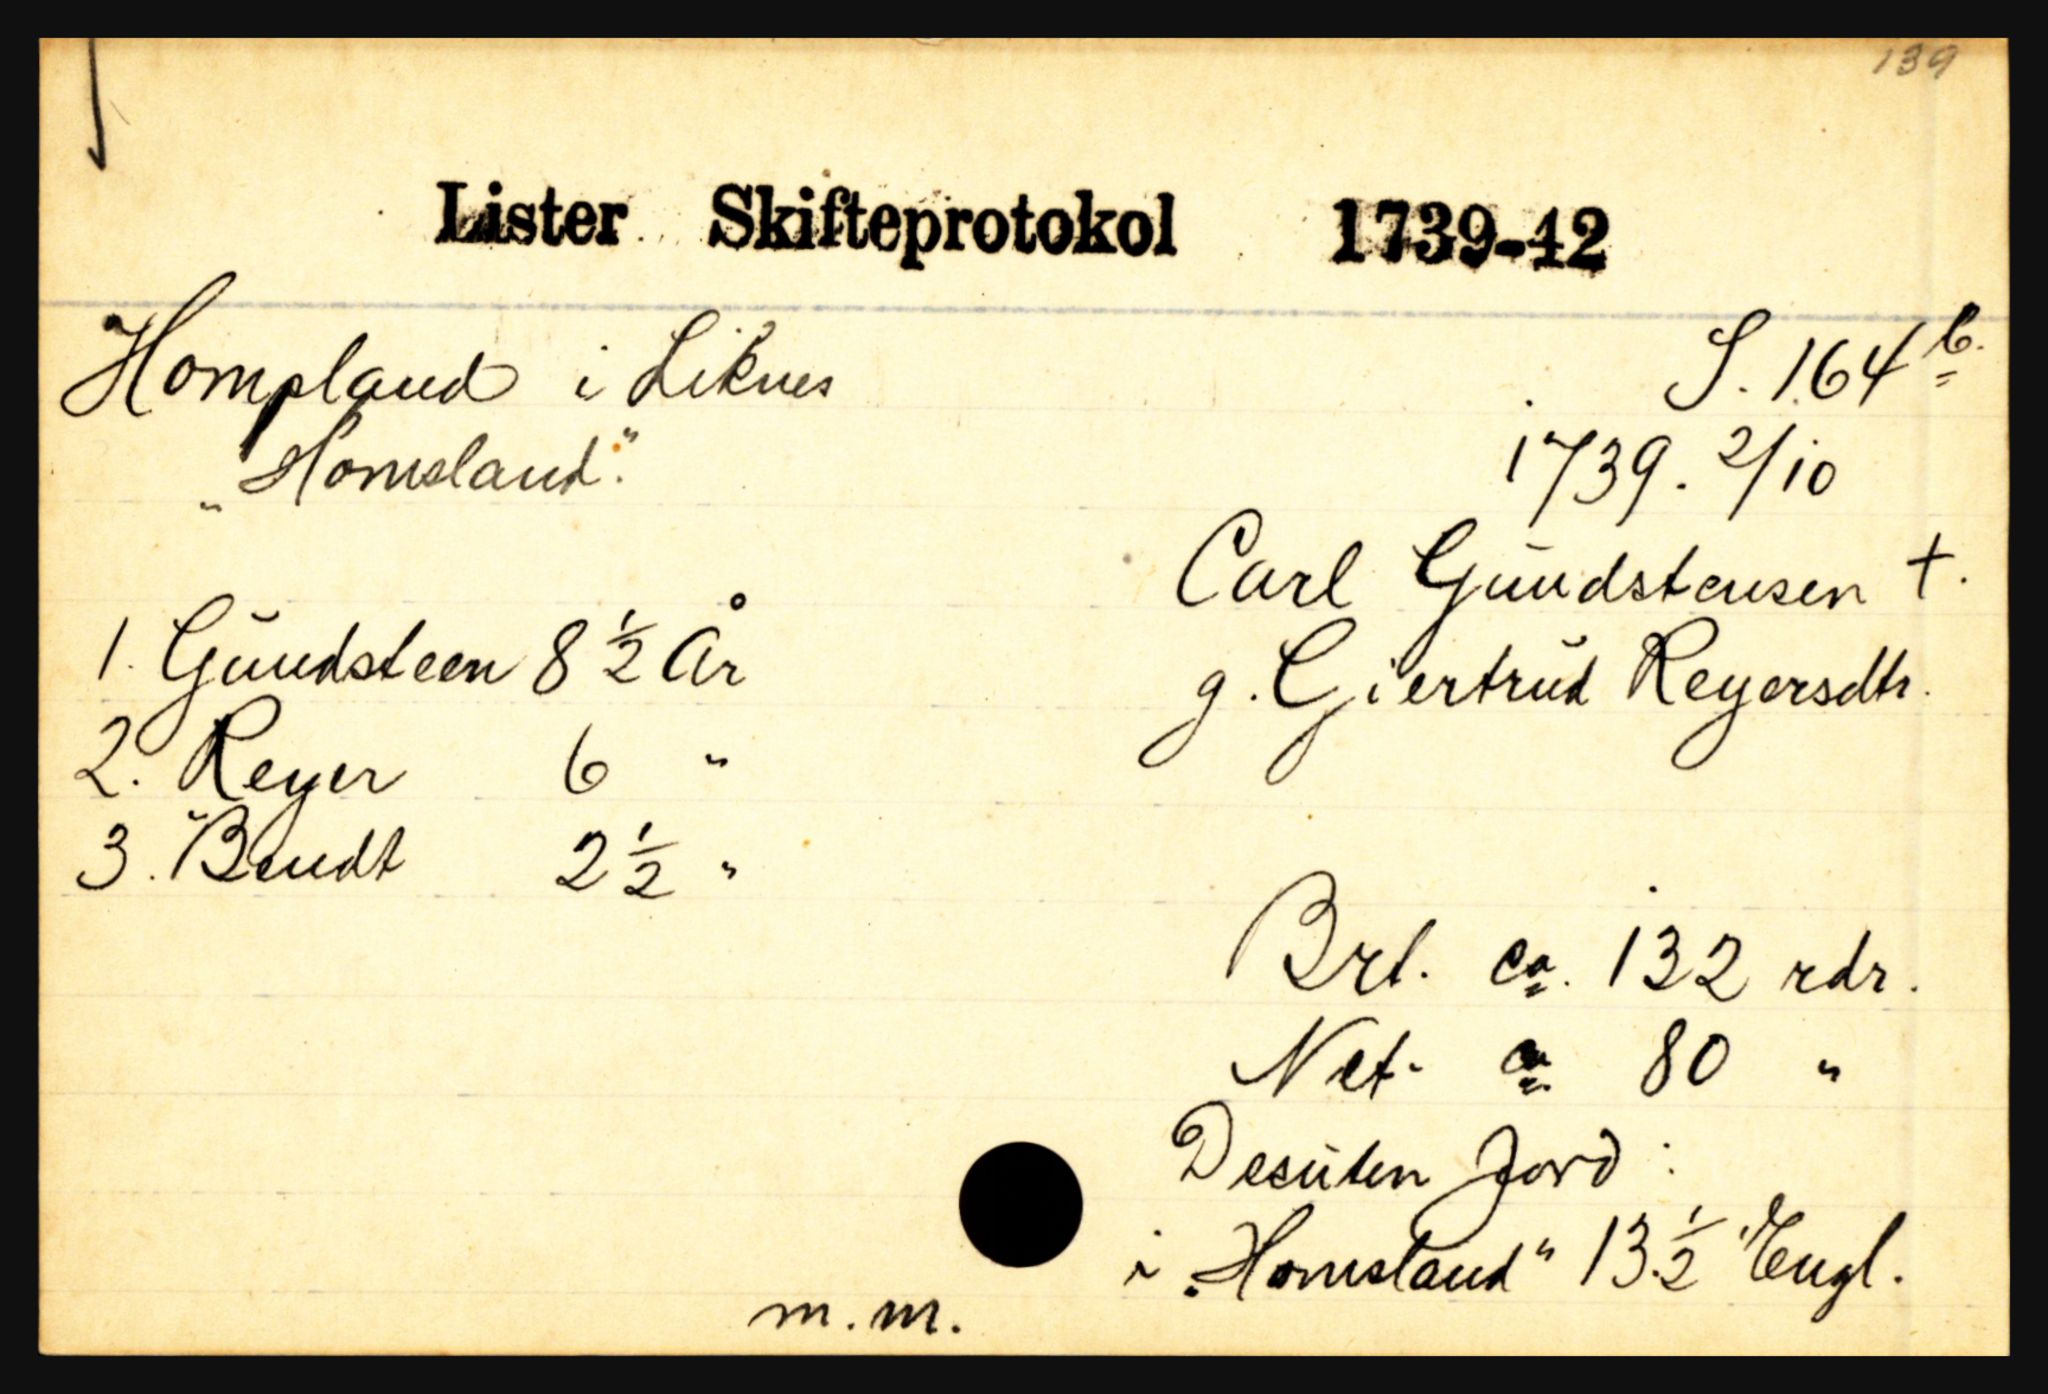 139
Lister Skifteprotokol 1739-42
Hompland i Liknes
„Homsland".
S. 164 b.
1739. 2/10
Carl Gŭndstensen †.
g. Giertrŭd Reyersdtr.
1. Gŭndsteen 8 ½ År
2. Reyer 6 "
3. Bendt 2 ½ "
Brt. ca. 132 rdr.
Net. ca. 80 "
Desŭten Jord :
i „Homsland" 13 ½ Engl.
m.m.